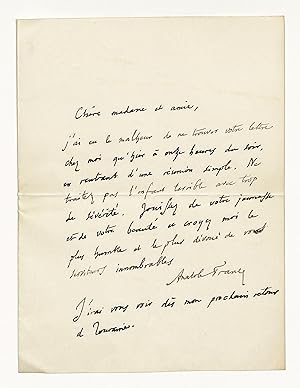 Chère madame et amie,
j'ai eu le malheur de ne trouver votre lettre
chez moi qu'hier à onze heures du soir,
en rentrant d'une réunion simple. Ne
traitez pas l'enfant terrible avec trop
de sévérité. Jouissez de votre jeunesse
et de votre beauté et croyez moi le
plus humble et le plus dévoué de vos
innombrables
Anatole France
J'irai vous voir dès mon prochain retour
de Touraine.